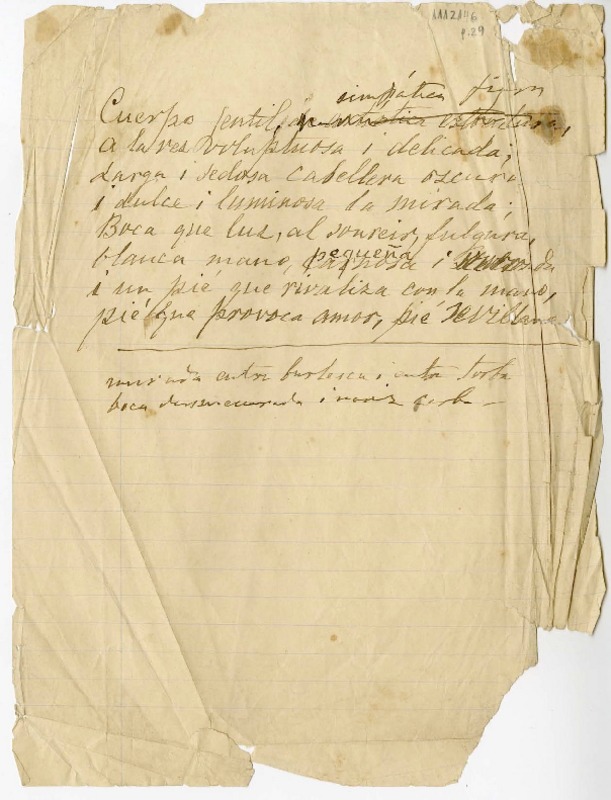 1112146
p.29
simpática figura
Cuerpo jentil, de artística estructura,
a la vez voluptuosa i delicada;
Larga i sedosa cabellera oscura
i dulce i luminosa la mirada;
Boca que luz, al sonreir, fulgura,
pequeña
blanca mano, carnosa i
i un pié que rivaliza con la mano,
pié que provoca amor, pié sevillano
mirada entre burlesca i entre torba
boca i nariz corba